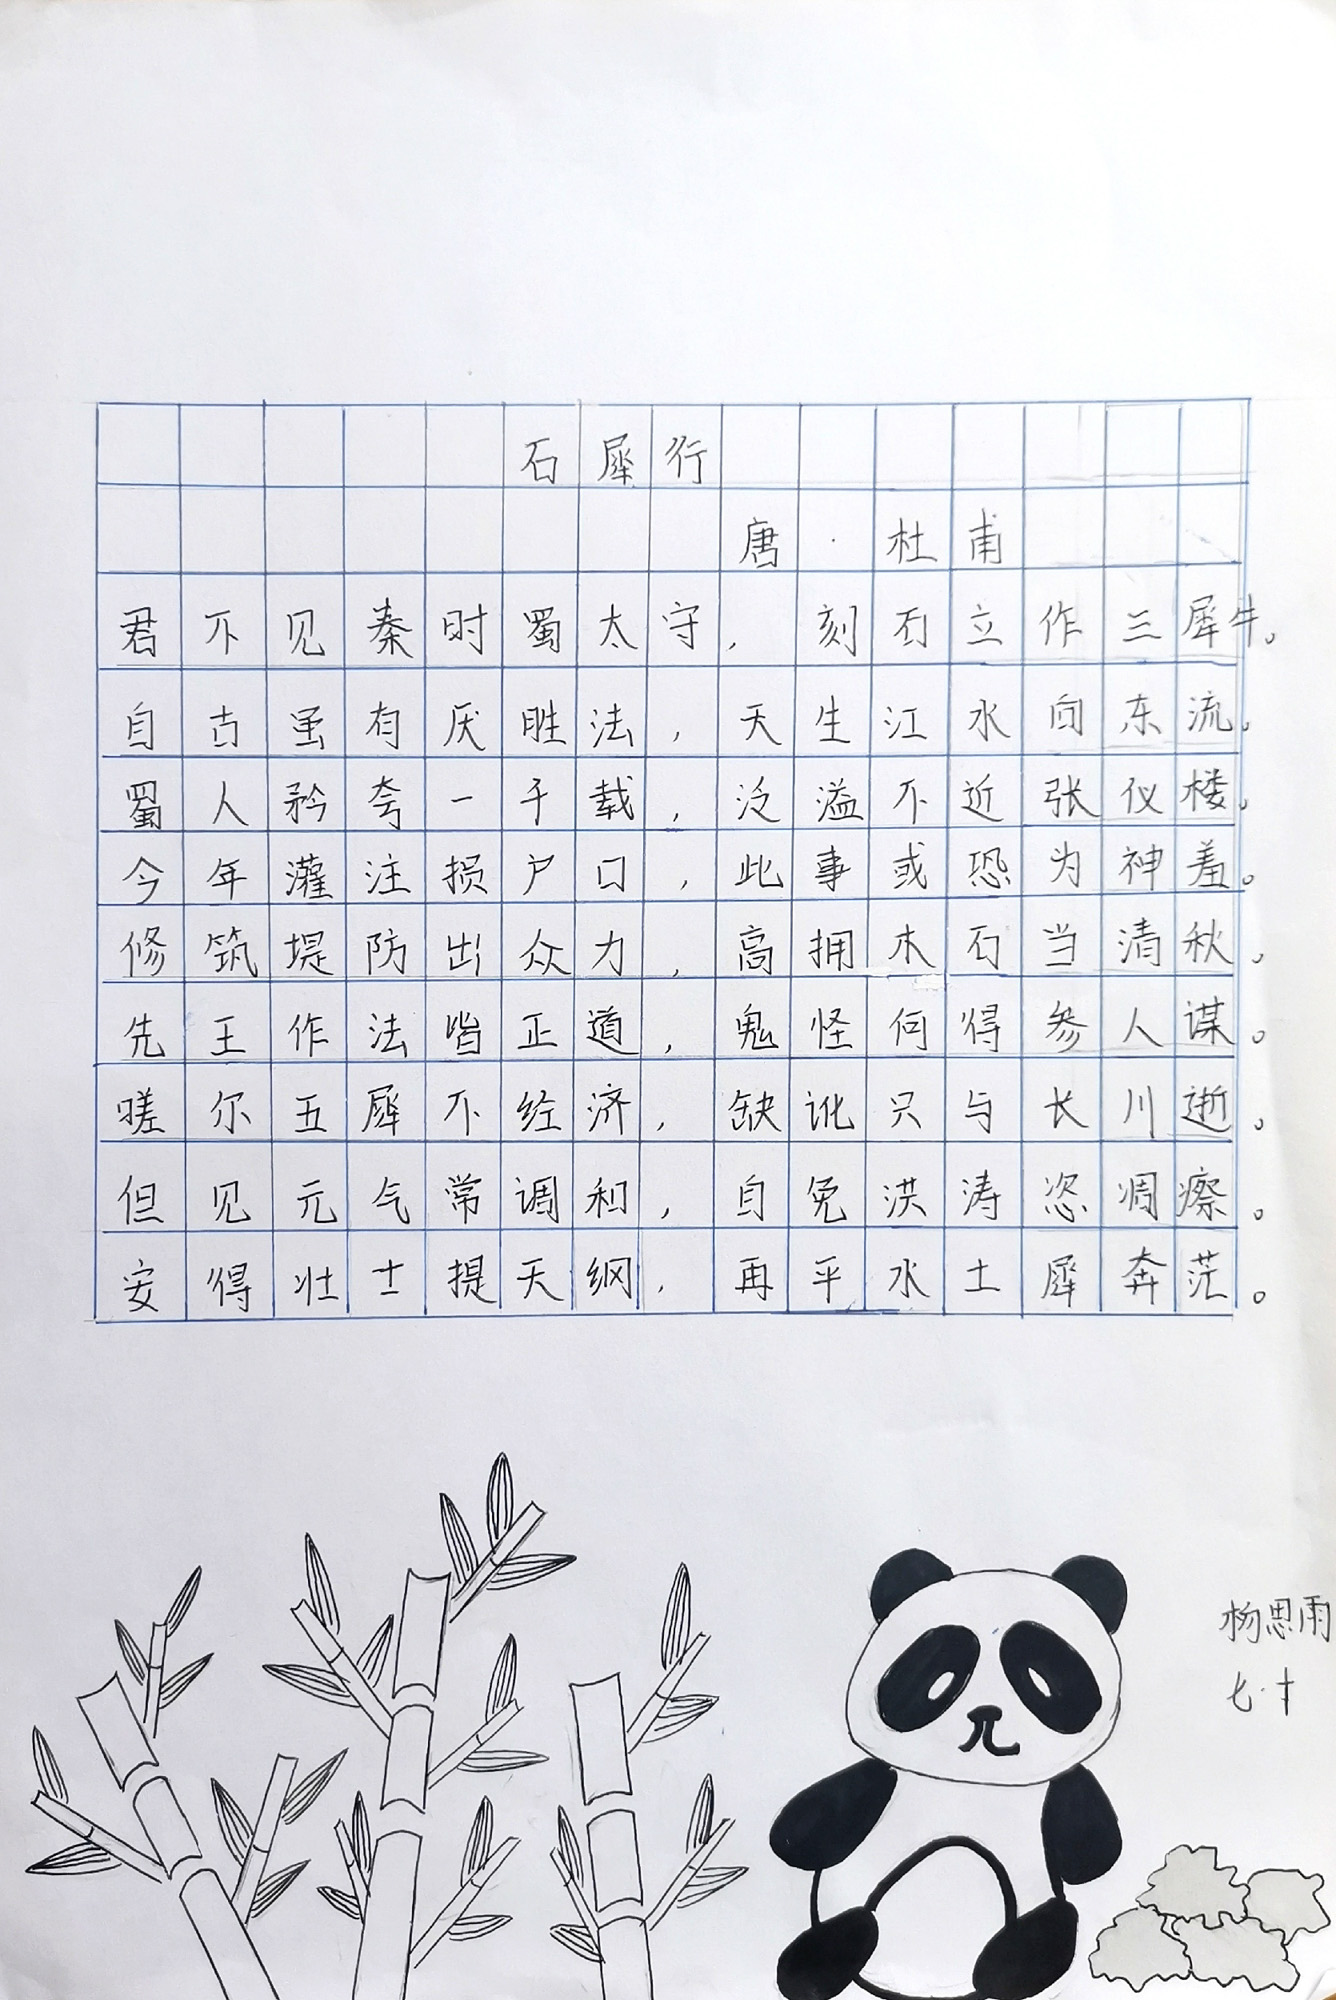 石犀行
唐·杜甫
君不见秦时蜀太守，刻石立作三犀牛。
自古虽有厌胜法，天生江水向东流。
蜀人矜夸一千载，泛溢不近张仪楼。
今年灌注损户口，此事或恐为神羞。
修筑堤防出众力，高拥木石当清秋。
先王作法皆正道，鬼怪何得参人谋。
嗟尔五犀不经济，缺讹只与长川逝。
但见元气常调和，自免洪涛恣凋瘵。
安得壮士提天纲，再平水土犀奔茫。
杨思雨
七·十